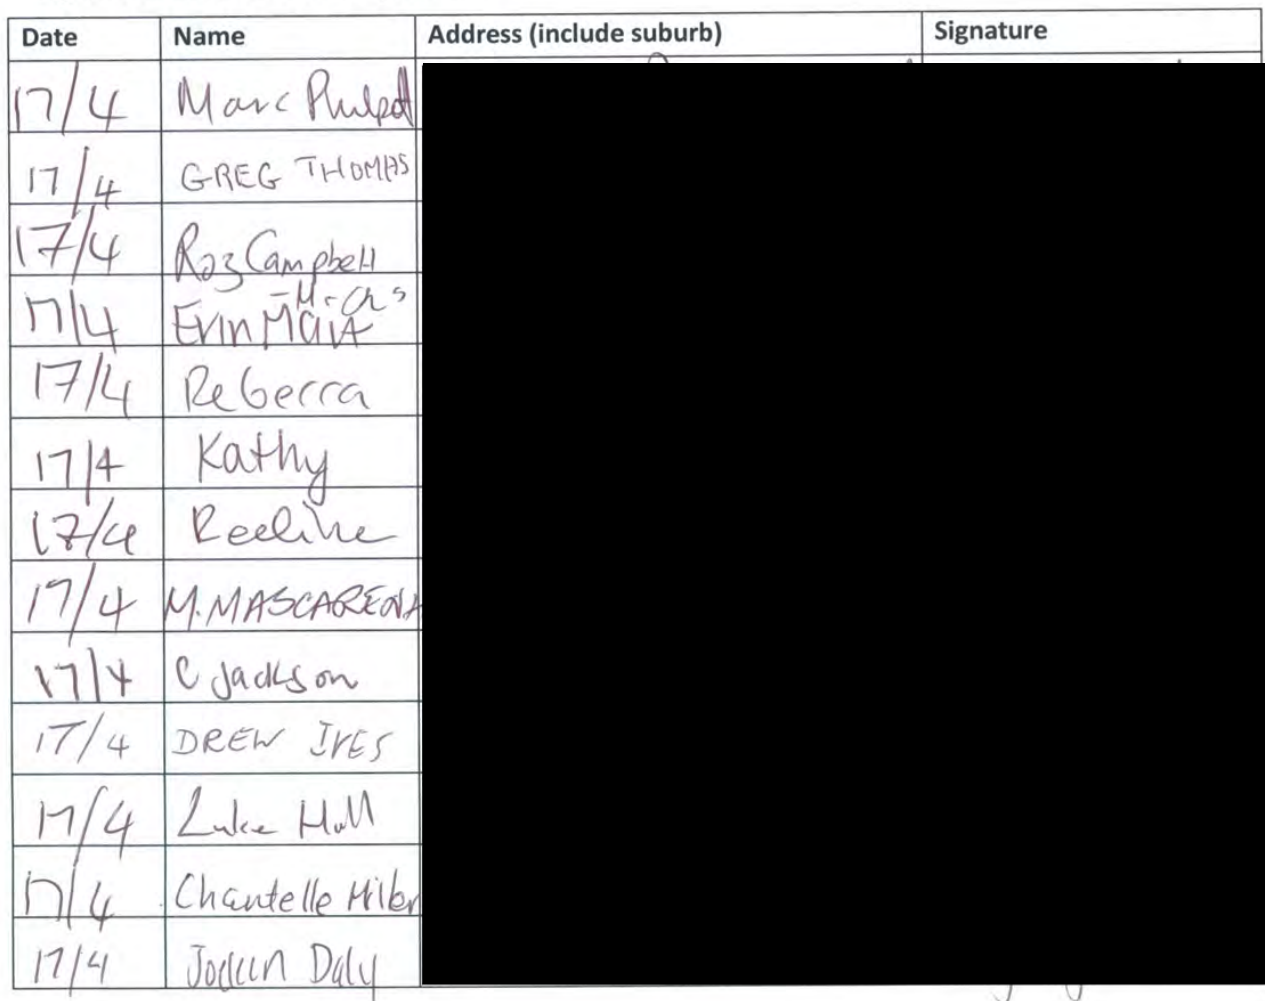 Date Name Address (include suburb) Signature
17/4 Marc
17/4 GREG THOMAS
17/4 Roz Campbell
17/4 Erin
17/4 Rebecca
17/4 Kathy
17/4
17/4 M. MASCARENA
17/4 C Jackson
17/4 DREW IVES
17/4 Luke Hall
17/4 Chantelle
17/4 Daly